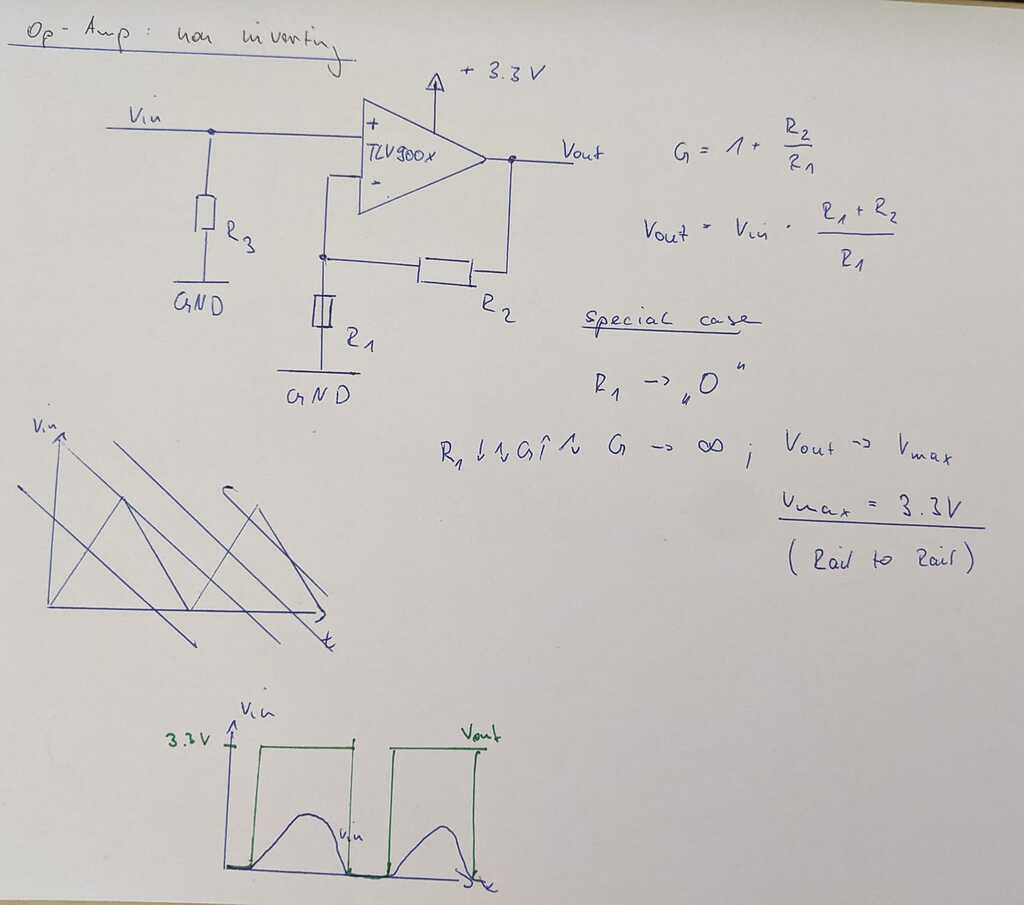 Op-Amp: non inverting
+ 3.3V
Vin
+
TLV900x
-
Vout
R3
GND
R2
R1
GND
G = 1 + R2/R1
Vout = Vin · (R1 + R2)/R1
special case
R1 → „0"
R1 ↓ ⇒ G↑ ⇒ G → ∞ ; Vout → Vmax
Vmax = 3.3V
(Rail to Rail)
Vin
t
Vin
3.3V
Vout
Vin
t